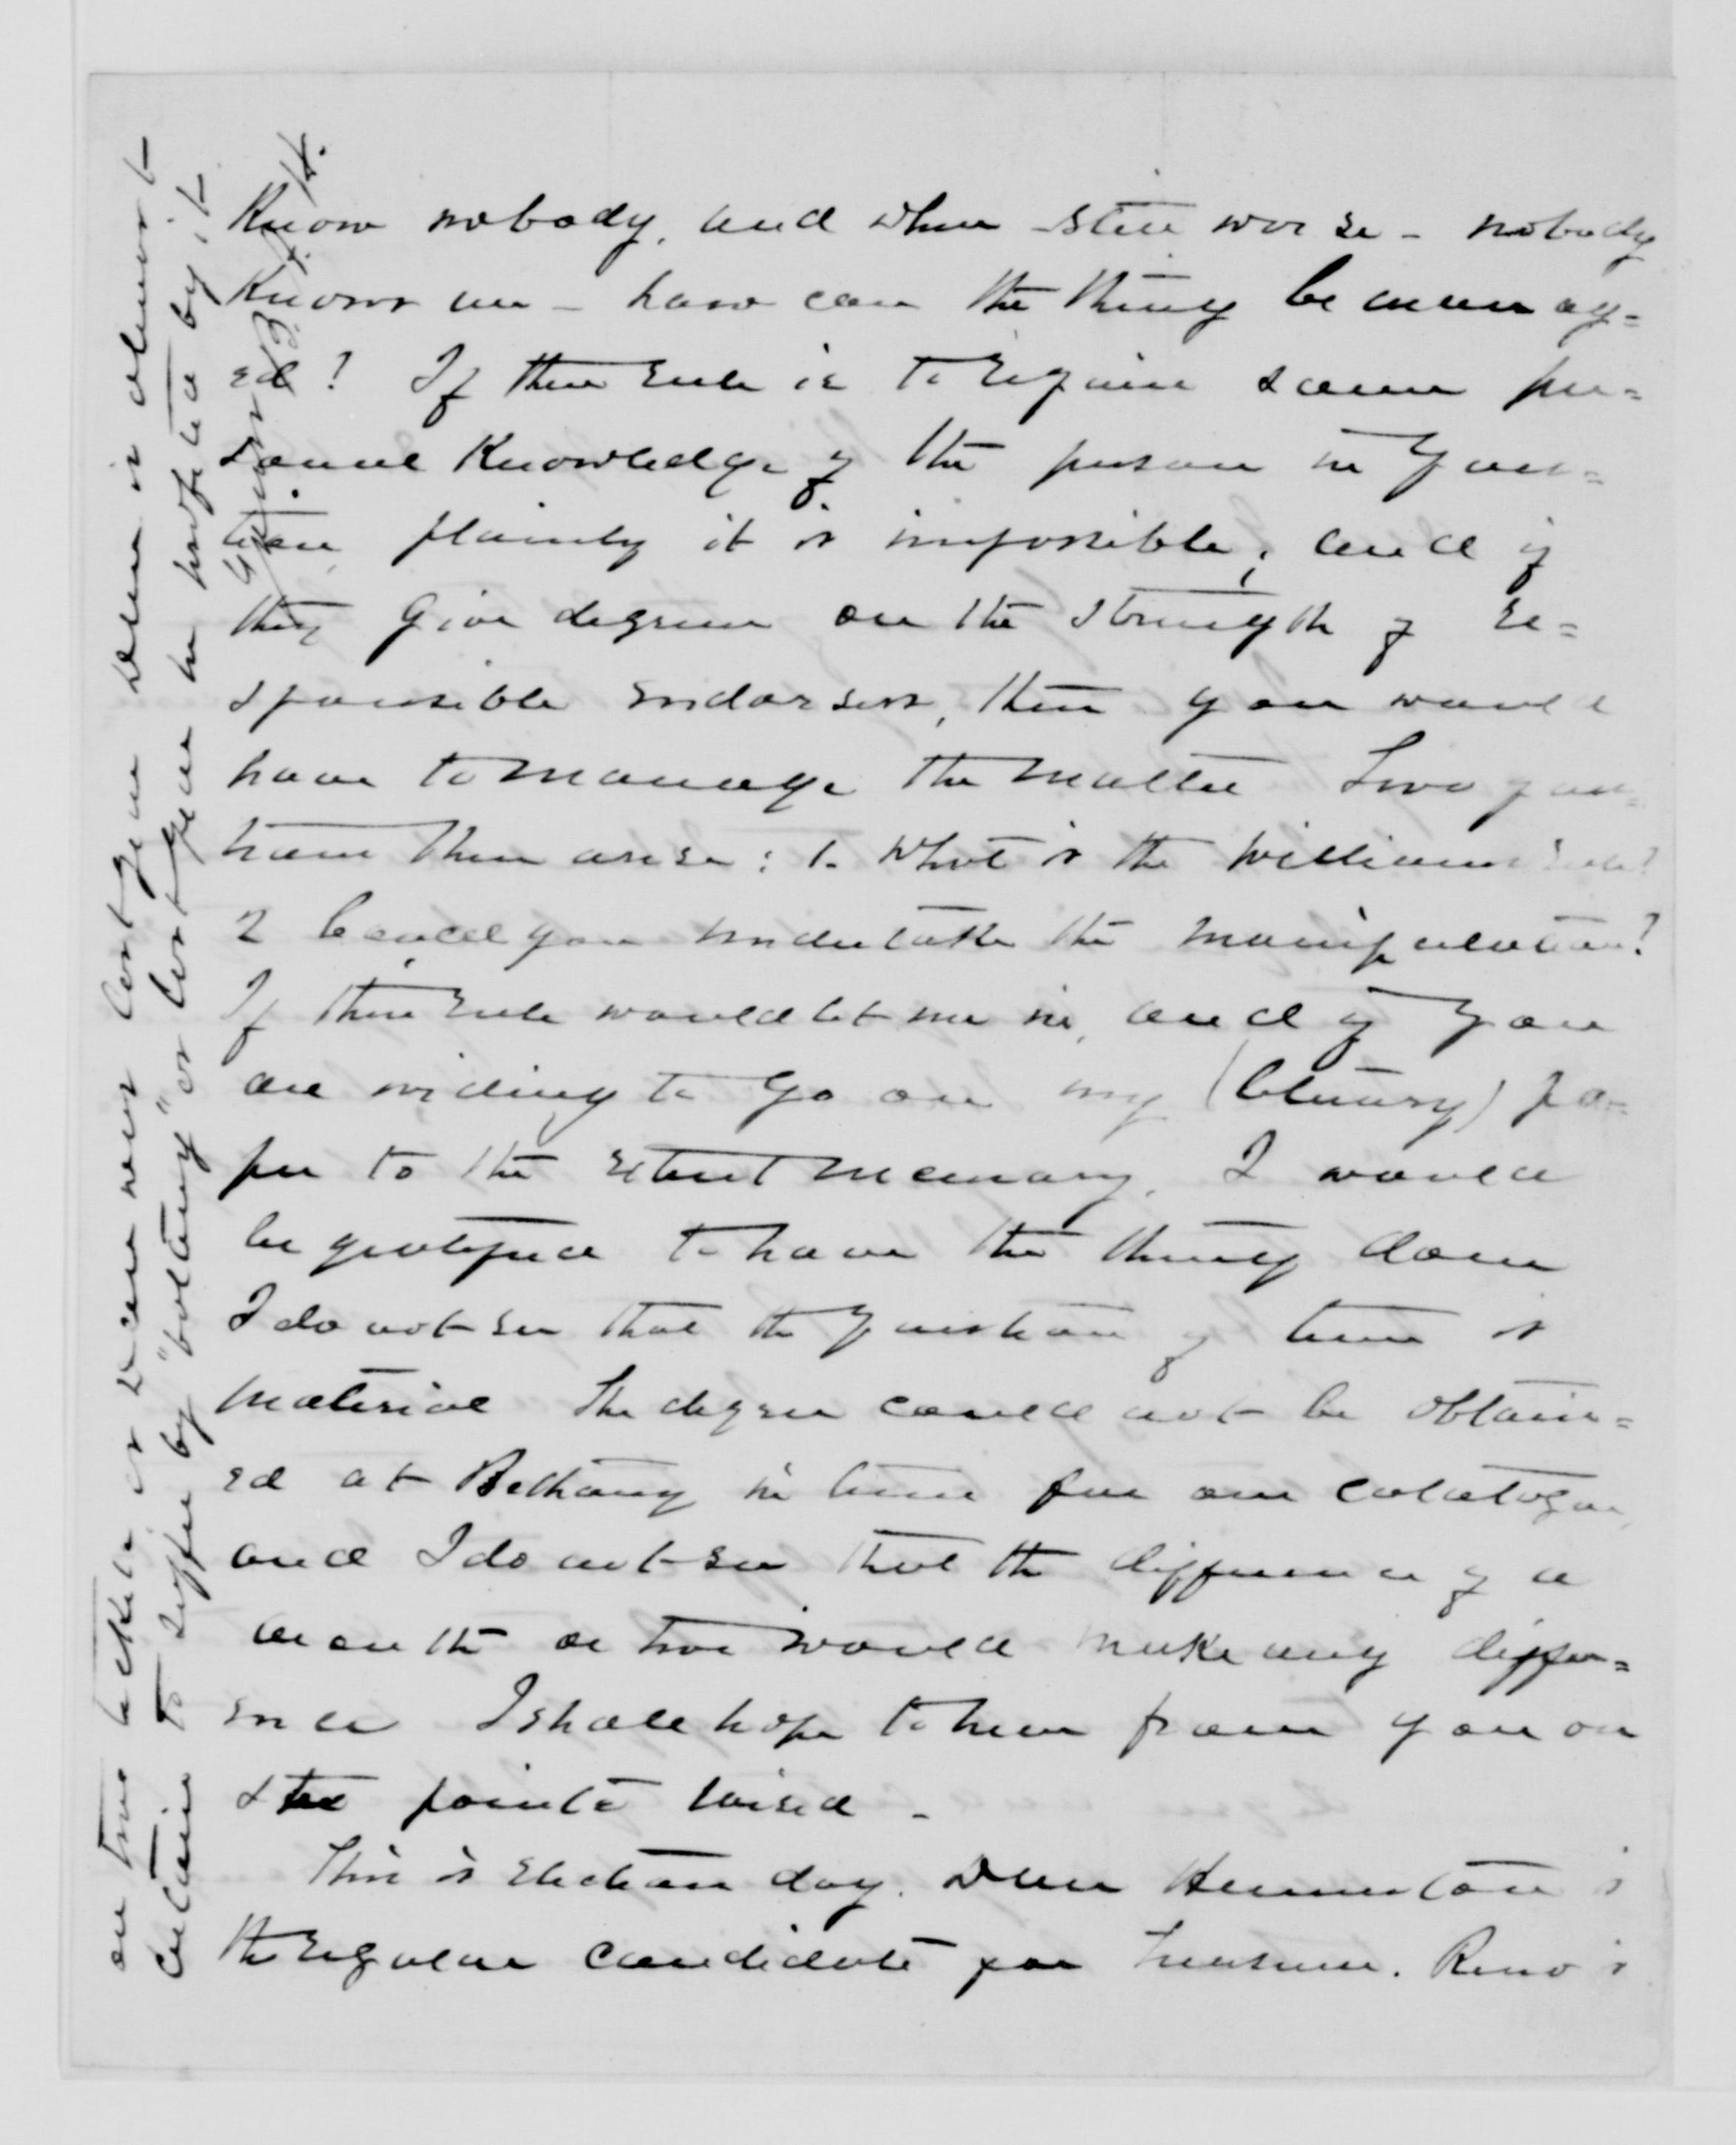 Know nobody, and when still worse - nobody
Knows me - how can the thing be manag=
ed? If their rule is to require some per=
sonal Knowledge of the person in ques=
tion, plainly it is impossible; and if
they give degrees on the strength of re=
sponsible endorsers, then you would
have to manage the matter Two ques=
tions then arise: 1. What is the Williams rule?
2 Could you undertake the manipulation?
If their rule would let me in, and if you
are willing to go on my (literary) pa=
per to the extent necessary, I would
be gratified to have the thing done
I do not see that the question of time is
material The degree could not be obtain=
ed at Bethany in time for our catalogue,
and I do not see that the difference of a
month or two would make any differ=
ence I shall hope to hear from you on
the points raised -
This is election day. Dean is
the regular candidate for Treasurer. Reno is
on two tickets or Dean nor Cortgean Dean is almost
certain to suffer by "bolting" or Cortgean be profited by it
Yours B. A. H.